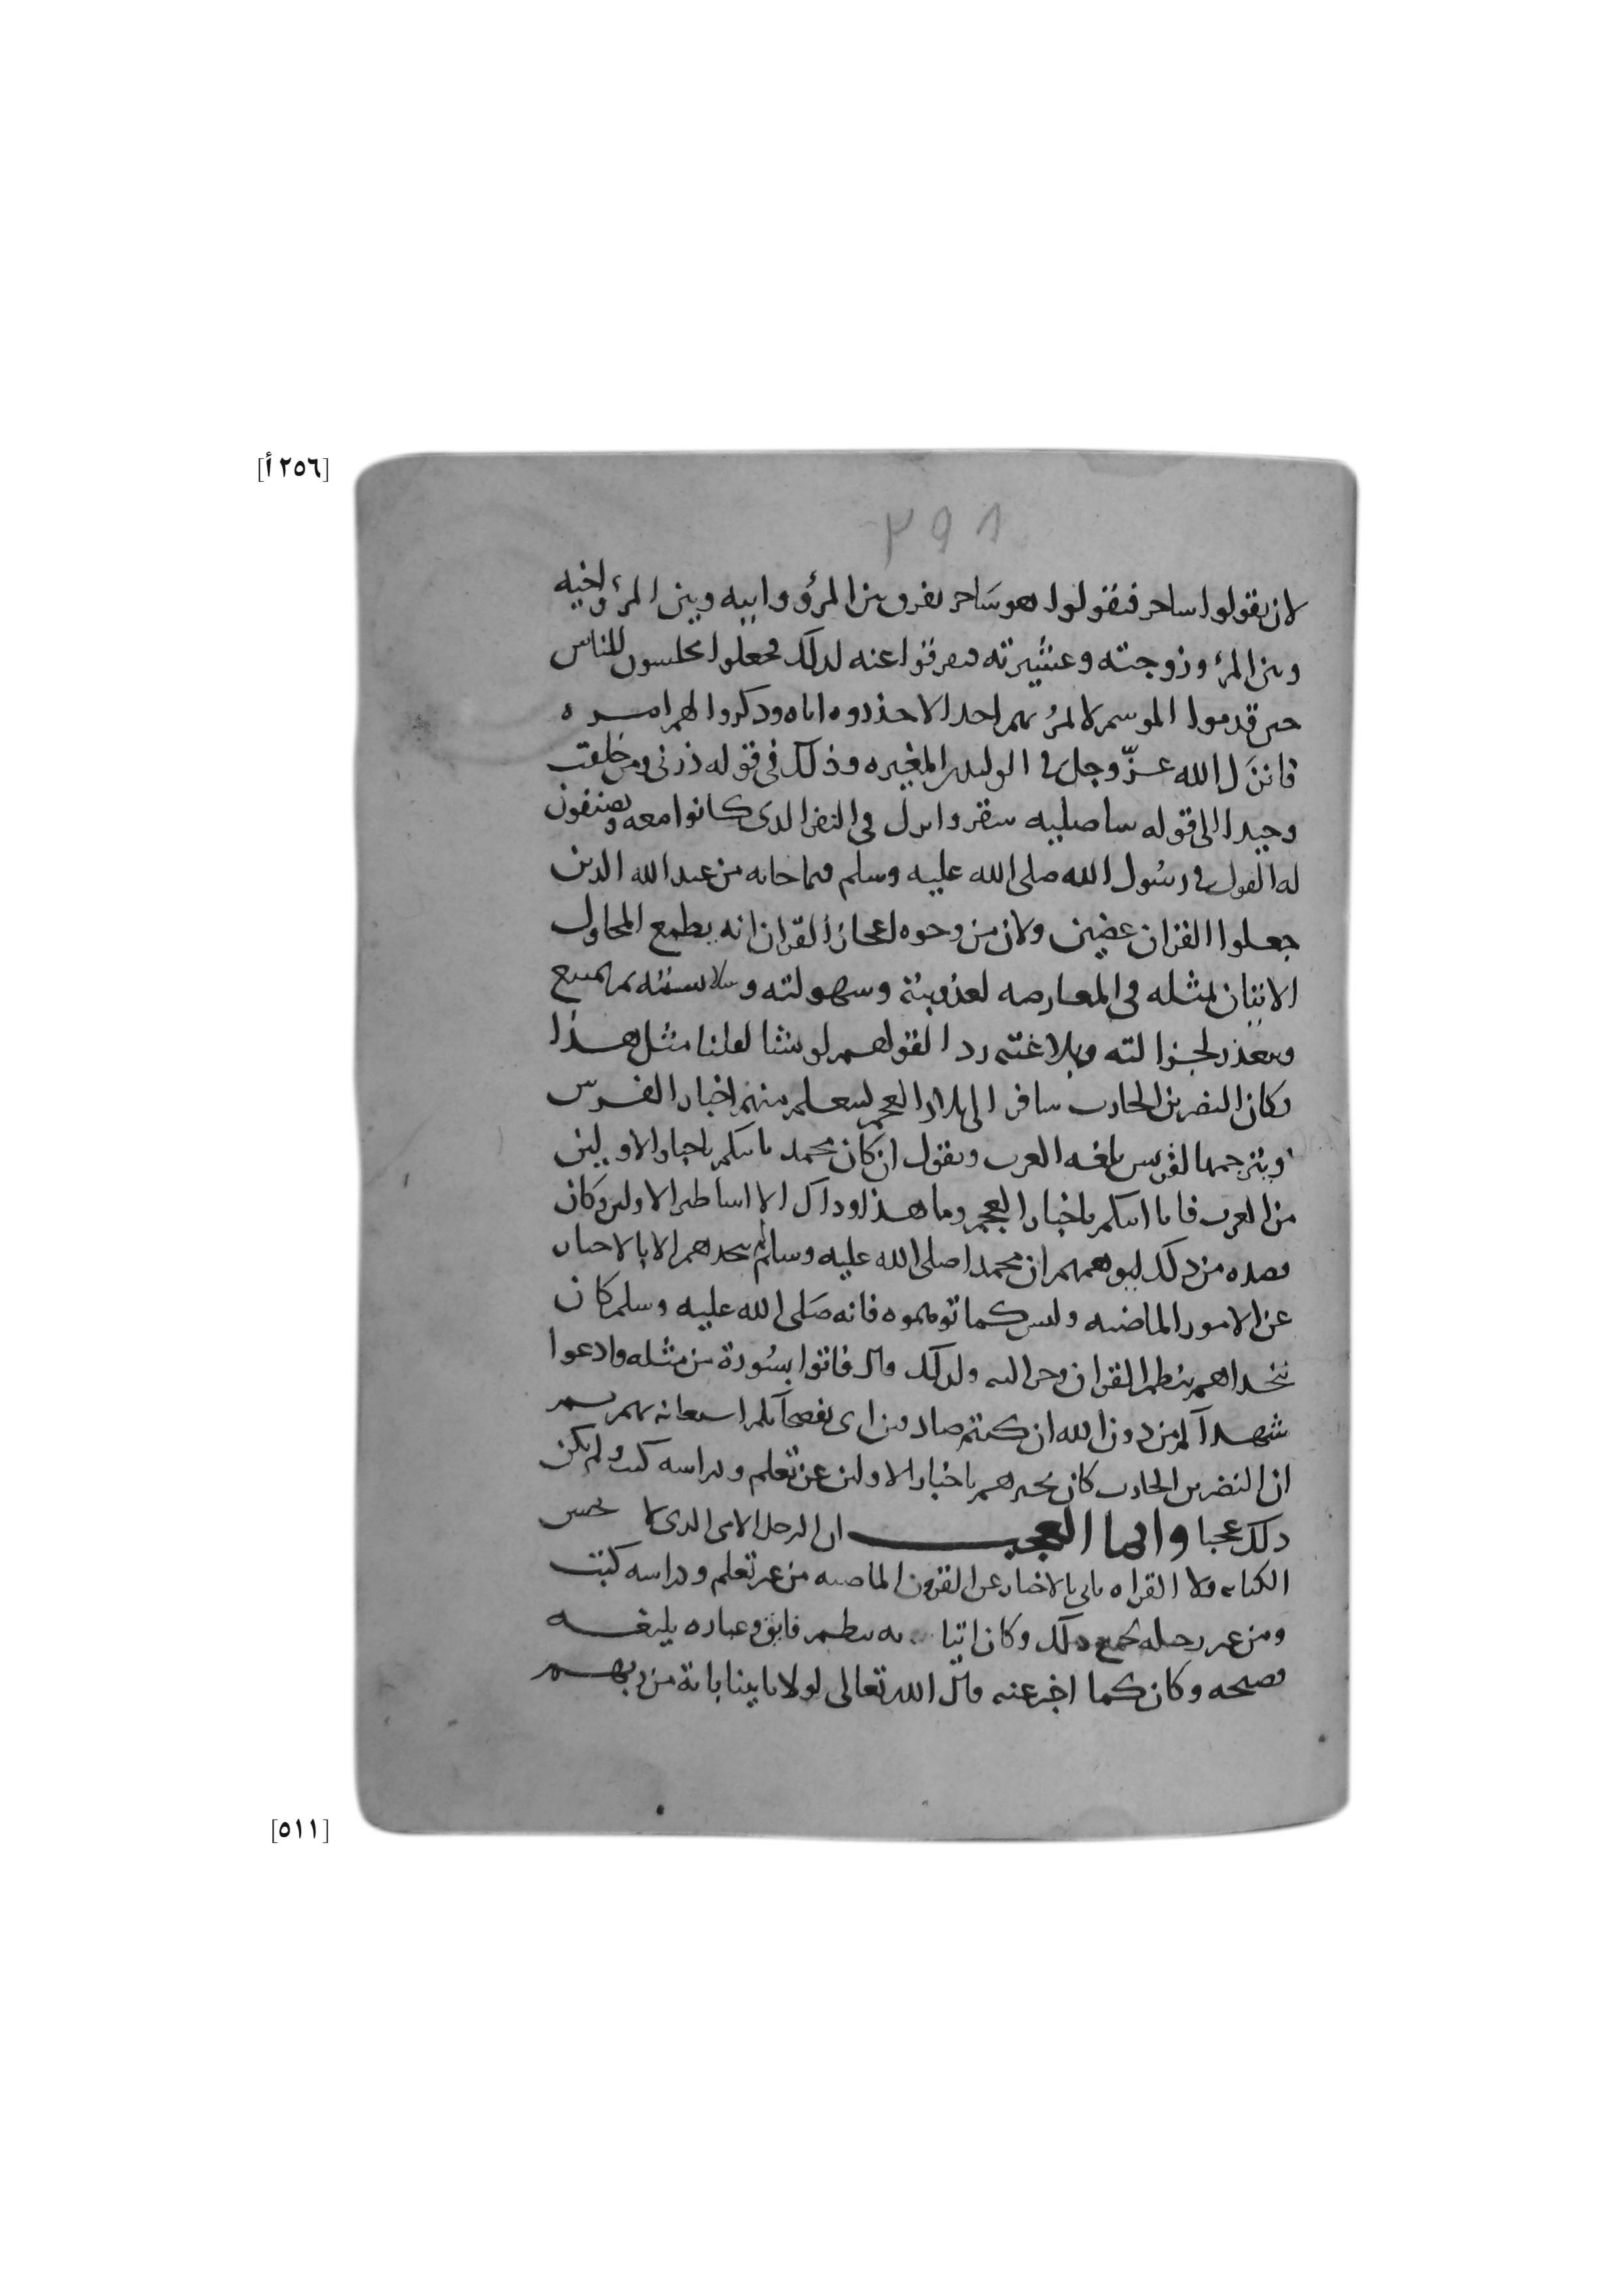 [٢٥٦ أ]
٣٩١
لان يقولوا ساحر فتقولوا هو ساحر يفرق بين المرؤ وابيه وبين المرء واخيه
وبين المرء وزوجته وعشيرته فتفرقوا عنه لذلك فجعلوا يجلسون للناس
حين قدموا الموسم لا يمر بهم احد الا حذروه اياه وذكروا لهم امره
فانزل الله عزّ وجل في الوليد بن المغيره وذلك في قوله ذرني ومن خلقت
وحيدا الى قوله ساصليه سقر وانزل في النفر الذي كانوا معه ويصنفون
له القول في رسول الله صلى الله عليه وسلم فيما جا به من عند الله الذين
جعلوا القران عضين ولان من وجوه اعجاز القران انه يطمع المحاول
الاتيان بمثله في المعارضه لعذوبته وسهولته وسلاسته ثم يمتنع
ويتعذر لجزالته وبلاغته ردا لقولهم لو نشا لقلنا مثل هذا
وكان النضر بن الحارث سافر الى بلاد العجم ليتعلم منهم اخبار الفرس
ويترجمها لقريش بلغه العرب ويقول ان كان محمد ياتيكم باخبار الاولين
من العرب فانا اتيكم باخبار العجم وما هذا وذاك الا اساطير الاولين وكان
قصده من ذلك ليوهمهم ان محمدا صلى الله عليه وسلم لم يتحداهم الا بالاخبار
عن الامور الماضيه وليس كما توهموه فانه صلى الله عليه وسلم كان
يتحداهم بنظم القران وجزالته ولذلك قال فاتوا بسورة من مثله وادعوا
شهدآكم من دون الله ان كنتم صادقين اي بفصحآيكم استعانه بهم
ان النضر بن الحارث كان يخبرهم باخبار الاولين عن تعلم ودراسه كتب ولم يكن
ذلك عجبا وانما العجب ان الرجل الامي الذي لا يحسن
الكتابه ولا القراه ياتي بالاخبار عن القرون الماضيه من غير تعلم ودراسه كتب
ومن غير رحله لجمع ذلك وكان اتيانه به بنظم فايق وعباره بليغه
فصيحه وكان كما اخبر عنه قال الله تعالى لولا ياتينا باية من ربه
[٥١١]